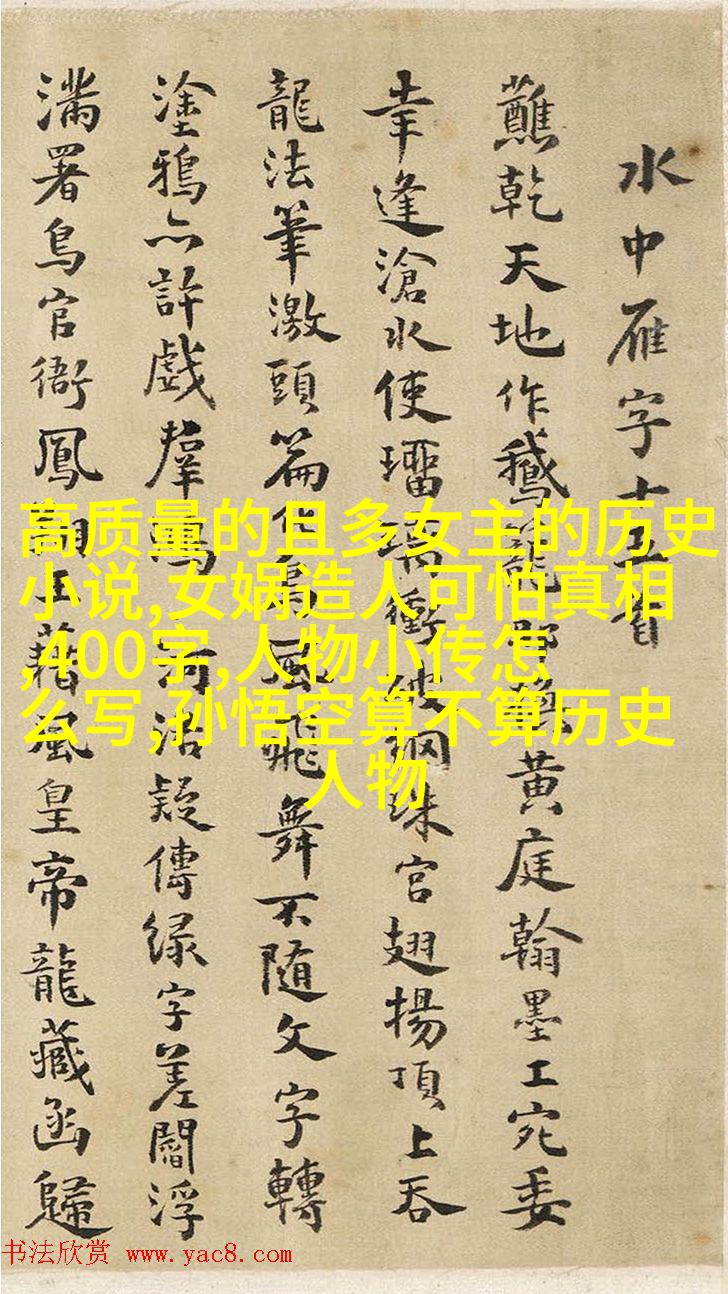 水中雁字十五首
蘸乾天地作鵝籠 黄庭翰墨工宛委
幸逢滄水使璢璃 衝破網珠宮翅揚頂上吞
龍法筆激頭篇 風飛舞不隨文字轉
塗鴉亦許戲羣 疑傳緑字差閻浮
滿署鳥官衙鳳 王藉風皇帝龍藏函歸
高质量的且多女主的历史
小说,女娲造人可怕真相
,400字,人物小传怎
么写,孙悟空算不算历史
人物
书法欣赏 www.yac8.com